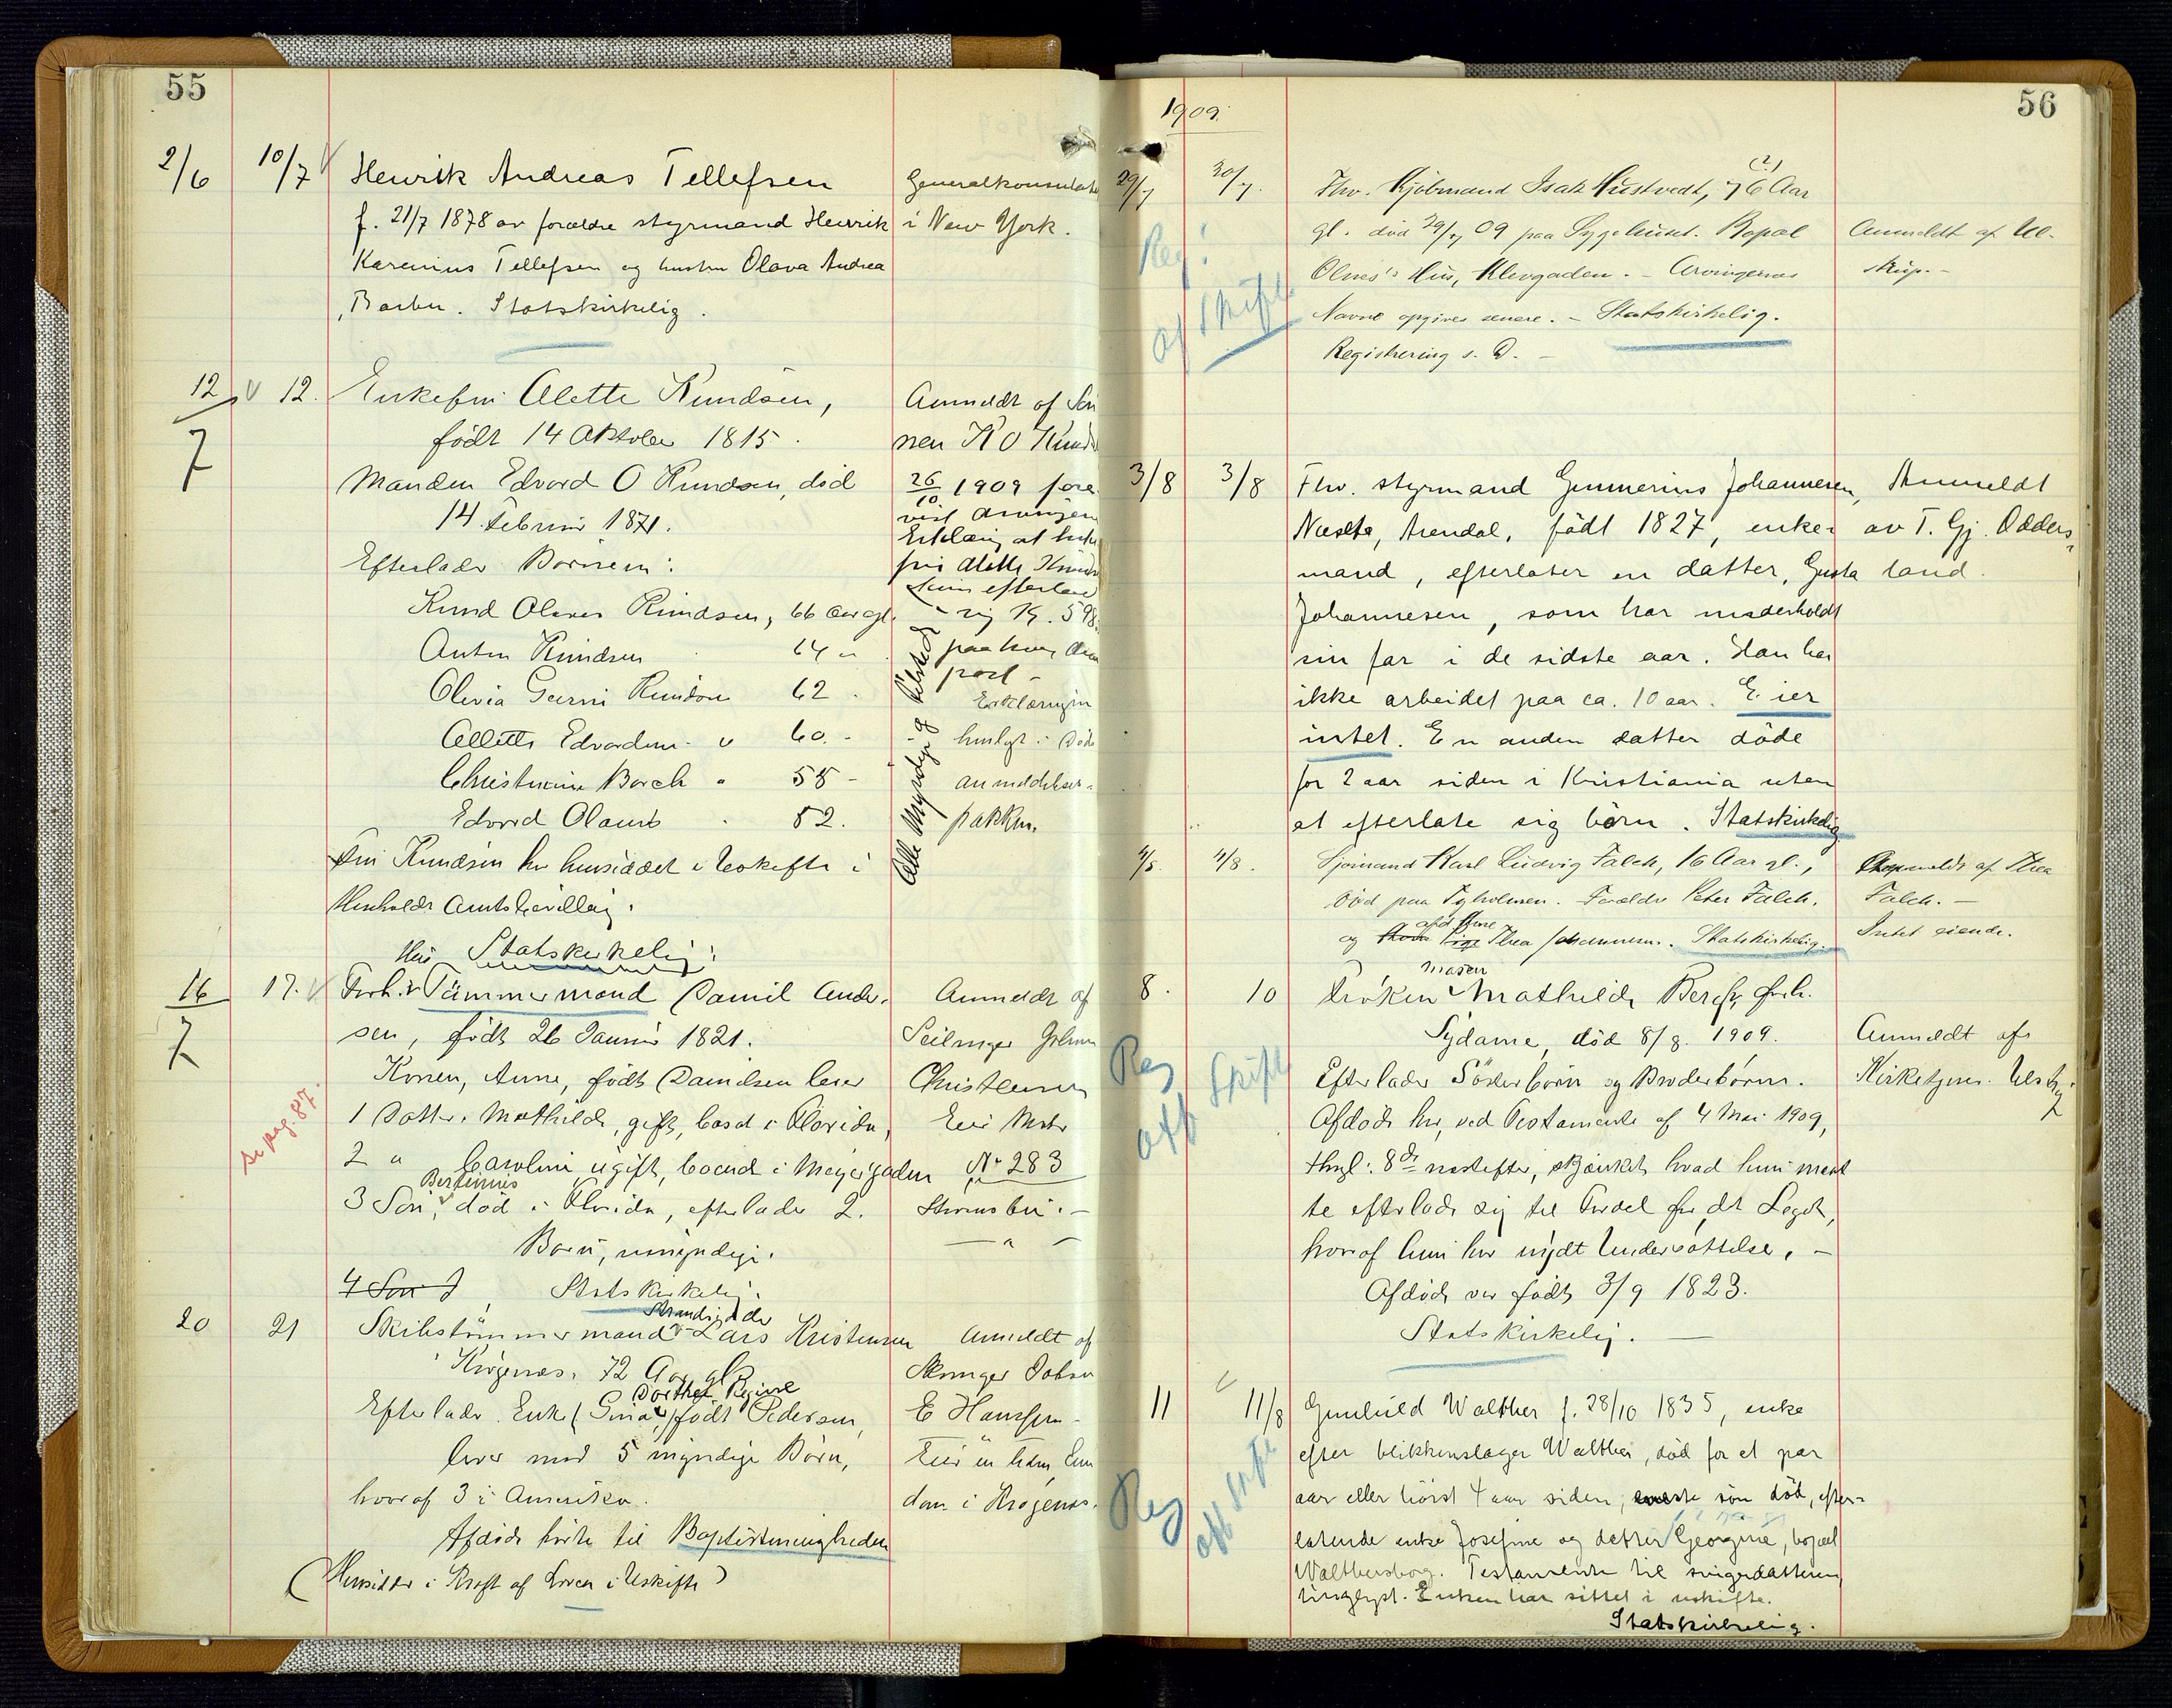 55
2/6 10/7 Henrik Andreas Tellefsen Generalkonsulatet
f. 21/7 1878 av forældre styrmand Henrik i New York.
Karenius Tellefsen og hustru Olava Andrea
Barbu. Statskirkelig.
12/7 12. Enkefru Alette Knudsen, Anmeldt af Søn
født 14 Oktober 1815. nen K O Knuds
Manden Edvard O Knudsen, død 26/10 1909 fore
14 Februar 1871. vist
Erklæring at
Efterlader Børnene: fru Alette Knuds
efterlod
Knud Olaus Knudsen, 66 Aar gl. sig K. 598
Anton Knudsen 64 " paa hver
part -
Olivia Knudsen 62 Erklæringen
Alette Edvardsen " 60. - henlagt i Døds
Christiane Borch " 58 - anmeldelses-
Edvard Olaus 52. pakken.
Alle Myndige og tilstede
Fru Knudsen har hensiddet i Uskifte i
Henhold til Amtsbevilling.
Statskirkelig.
16/7 17. Forh.v. Tømmermand Daniel Ander- Anmeldt af
sen, født 26 Januar 1821. Johan
Konen, Anne, født Danielsen lever Christensen
1 Datter, Mathilde, gift, bosat i Florida, Eier Matr
2 " Caroline, ugift, boende i Meyersgaden Nr 283
Bertinius
3 Søn, død i Florida, efterlader 2. Strømsbu. -
Børn, umyndige.
4 Søn Statskirkelig.
se pag. 87.
20 21 Skibstømmermand Lars Kristensen Anmeldt af
Krøgenes, 72 Aar gl. Johan
Dorthea Regine
Efterlader Enke (Gina) født Pedersen, E Hanssen -
lever med 5 myndige Børn, Eier en
hvoraf 3 i Amerika. dom i Krøgenes.
Afdøde hørte til Baptistmenigheden
(Hensidder i Kraft af Loven i Uskifte)
1909.
56
29/7 30/7. Fhv. Kjøbmand Isak Hustvedt, 76 (?) Aar
gl. død 29/7 09 paa Sygehuset. Bopæl Anmeldt af
Olsens Hus, Klevgaden. - Arvingernes
Navne opgives senere. - Statskirkelig.
Registrering s. D. -
Reg:
af Skifte
3/8 3/8 Fhv. styrmand Gunnerius Johannesen, Anmeldt
Neskte, Arendal, født 1827, enke- av T. Gj. Odders-
mand, efterlater en datter, Gusta land.
Johannesen, som har underholdt
sin far i de sidste aar. Han har
ikke arbeidet paa ca. 10 aar. Eier
intet. En anden datter døde
for 2 aar siden i Kristiania uten
at efterlate sig børn. Statskirkelig
4/8 4/8. Sjømand Karl Ludvig Falch, 16 Aar gl., Anmeldt af Thea
død paa Tyholmen. Forældre Peter Falch. Falch. -
og Thea Johannesen. Statskirkelig. Intet eiende.
Maren
8. 10 Frøken Mathilde Berg, forh.
Sydame, død 8/8. 1909. Anmeldt af
Efterlader Søsterbørn og Broderbørn. Kirketjener
Afdøde har, ved Testamente af 4 Mai 1909,
thngl. 8de næstefter, skjænket hvad hun maat
te efterlade sig til Fordel for det Legat,
hvoraf hun har nydt Understøttelse. -
Afdøde var født 3/9 1823.
Statskirkelig. -
Reg
off Skifte
11 11/8 Gunhild Walther f. 28/10 1835, enke
efter blikkenslager Walther, død for et par
aar eller høist 4 aar siden, eneste søn død, efter-
latende enke Josefine og datter Georgine, bopæl
Walthersborg. Testamente til svigerdatteren
tinglyst. Enken har sittet i uskifte.
Statskirkelig.
Reg
off Skifte